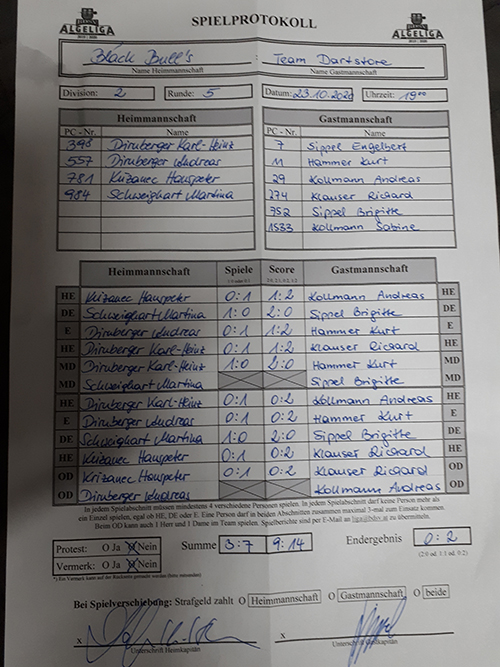 SPIELPROTOKOLL
ALGELIGA ALGELIGA
Black Bull's : Team Dartstore
Name Heimmannschaft Name Gastmannschaft
Division: 2 Runde: 5 Datum: 23.10.2020 Uhrzeit: 19⁰⁰
Heimmannschaft Gastmannschaft
PC - Nr. Name PC - Nr. Name
398 Dirnberger Karl-Heinz 7 Sippel Engelbert
557 Dirnberger Andreas 11 Hammer Kurt
781 Krizanec Hanspeter 29 Kollmann Andreas
984 Schweighart Martina 274 Klauser Richard
752 Sippel Brigitte
1533 Kollmann Sabine
Heimmannschaft Spiele Score Gastmannschaft
HE Krizanec Hanspeter 0:1 1:2 Kollmann Andreas HE
DE Schweighart Martina 1:0 2:0 Sippel Brigitte DE
E Dirnberger Andreas 0:1 1:2 Hammer Kurt E
HE Dirnberger Karl-Heinz 0:1 1:2 Klauser Richard HE
MD Dirnberger Karl-Heinz 1:0 2:0 Hammer Kurt MD
MD Schweighart Martina Sippel Brigitte MD
HE Dirnberger Karl-Heinz 0:1 0:2 Kollmann Andreas HE
E Dirnberger Andreas 0:1 0:2 Hammer Kurt E
DE Schweighart Martina 1:0 2:0 Sippel Brigitte DE
HE Krizanec Hanspeter 0:1 0:2 Klauser Richard HE
OD Krizanec Hanspeter 0:1 0:2 Klauser Richard OD
OD Dirnberger Andreas Kollmann Andreas OD
In jedem Spielabschnitt müssen mindestens 4 verschiedene Personen spielen. In jedem Spielabschnitt darf keine Person mehr als
ein Einzel spielen, egal ob HE, DE oder E. Eine Person darf in beiden Abschnitten zusammen maximal 3-mal zum Einsatz kommen.
Beim OD kann auch 1 Herr und 1 Dame im Team spielen. Spielberichte sind per E-Mail an liga@lbdv.at zu übermitteln.
Protest: O Ja O Nein Summe 3:7 9:14 Endergebnis 0:2
Vermerk: O Ja O Nein (2:0 od. 1:1 od. 0:2)
*) Ein Vermerk kann auf der Rückseite gemacht werden (bitte umwenden)
Bei Spielverschiebung: Strafgeld zahlt O Heimmannschaft O Gastmannschaft O beide
x x
Unterschrift Heimkapitän Unterschrift Gastkapitän